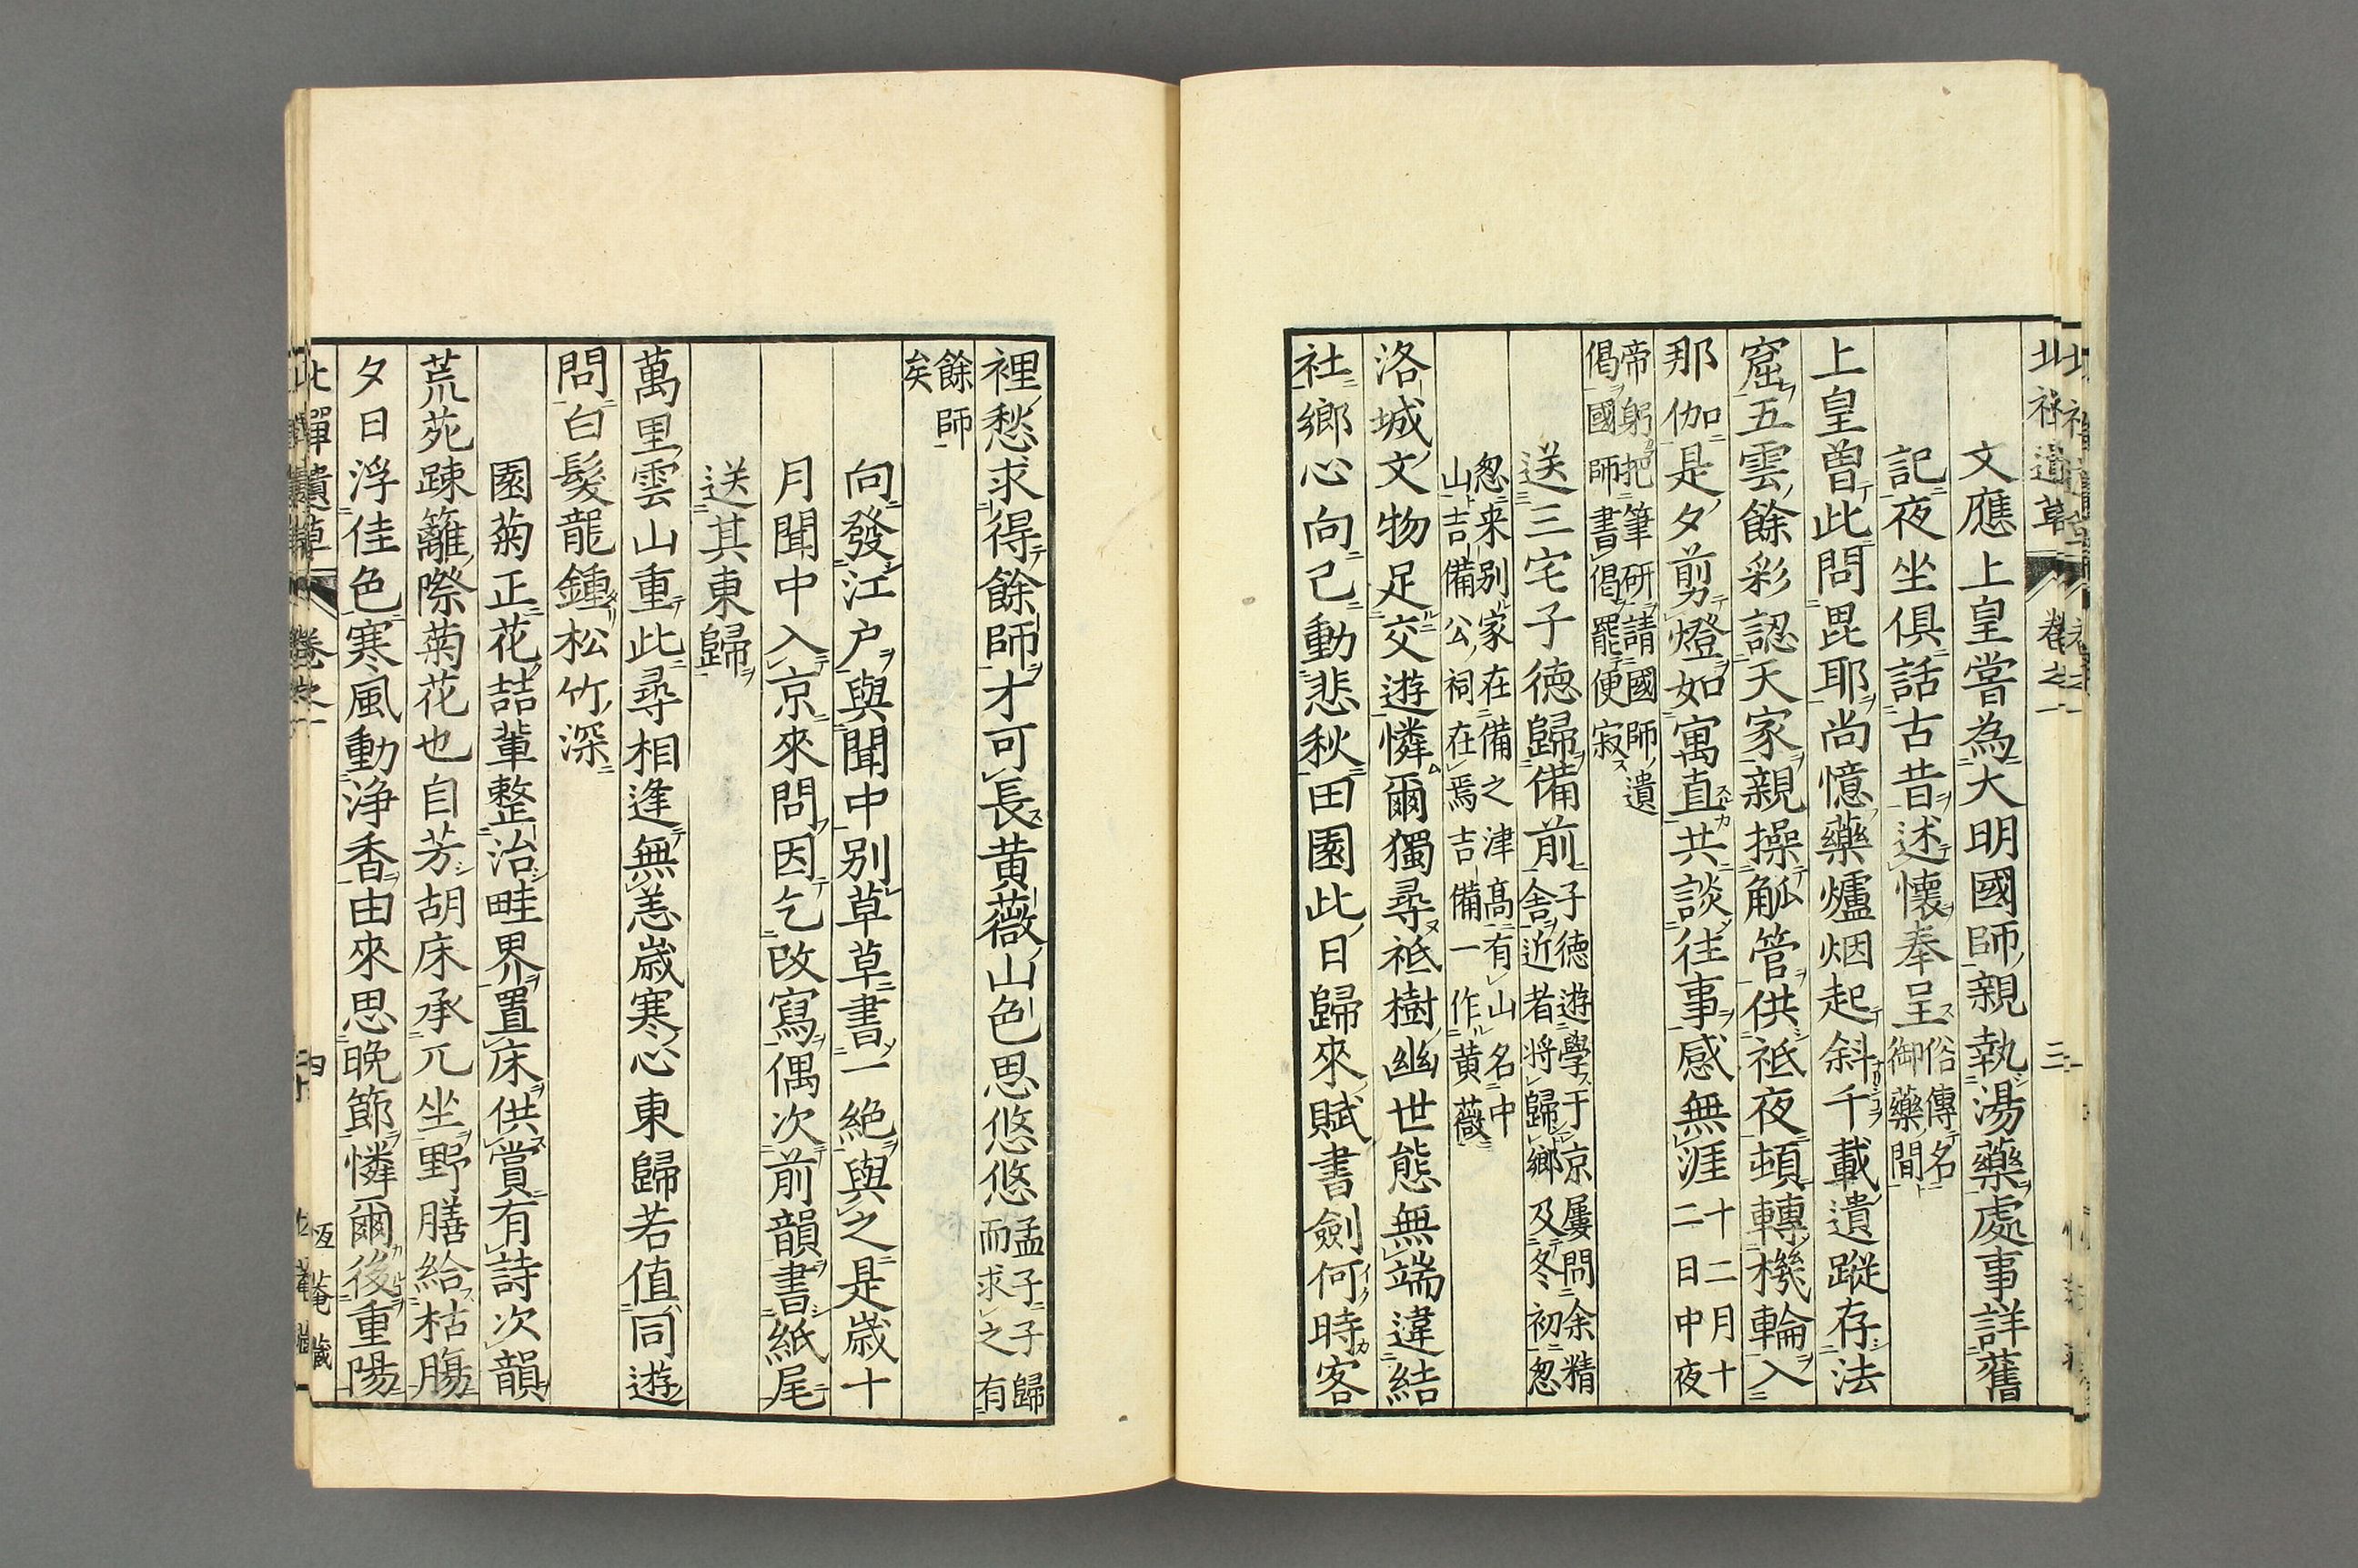 北禪遺草 卷之一 三
文應上皇嘗為大明國師親執湯藥處事詳舊
記夜坐俱話古昔述懷奉呈
俗傳名
御藥間
上皇曽此問毘耶尚憶藥爐烟起斜千載遺蹤存法
窟五雲餘彩認天家親操觚管供祗夜頓轉機輪入
那伽是夕剪燈如寓直共談徃事感無涯
十二月十
二日中夜
帝躬把筆研請國師遺
偈國師書偈罷便寂
送三宅子德歸備前
子德遊學于京屢問余精
舍近者將歸鄉及冬初忽
忽来别家在備之津髙有山名中
山吉備公祠在焉吉備一作黄薇
洛城文物足交遊憐爾獨尋祗樹幽世態無端違結
社鄉心向己動悲秋田園此日歸來賦書劍何時客
裡愁求得餘師才可長黄薇山色思悠悠
孟子子歸
而求之有
餘師
矣
向發江户與聞中别草草書一絶與之是歲十
月聞中入京來問因乞改寫偶次前韻書紙尾
送其東歸
萬里雲山重此尋相逢無恙歲寒心東歸若值同遊
問白髮龍鍾松竹深
園菊正花喆輩整治畦界置床供賞有詩次韻
荒苑踈籬際菊花也自芳胡床承兀坐野膳給枯腸
夕日浮佳色寒風動浄香由來思晚節憐爾後重陽
北禪遺草 卷之一 四